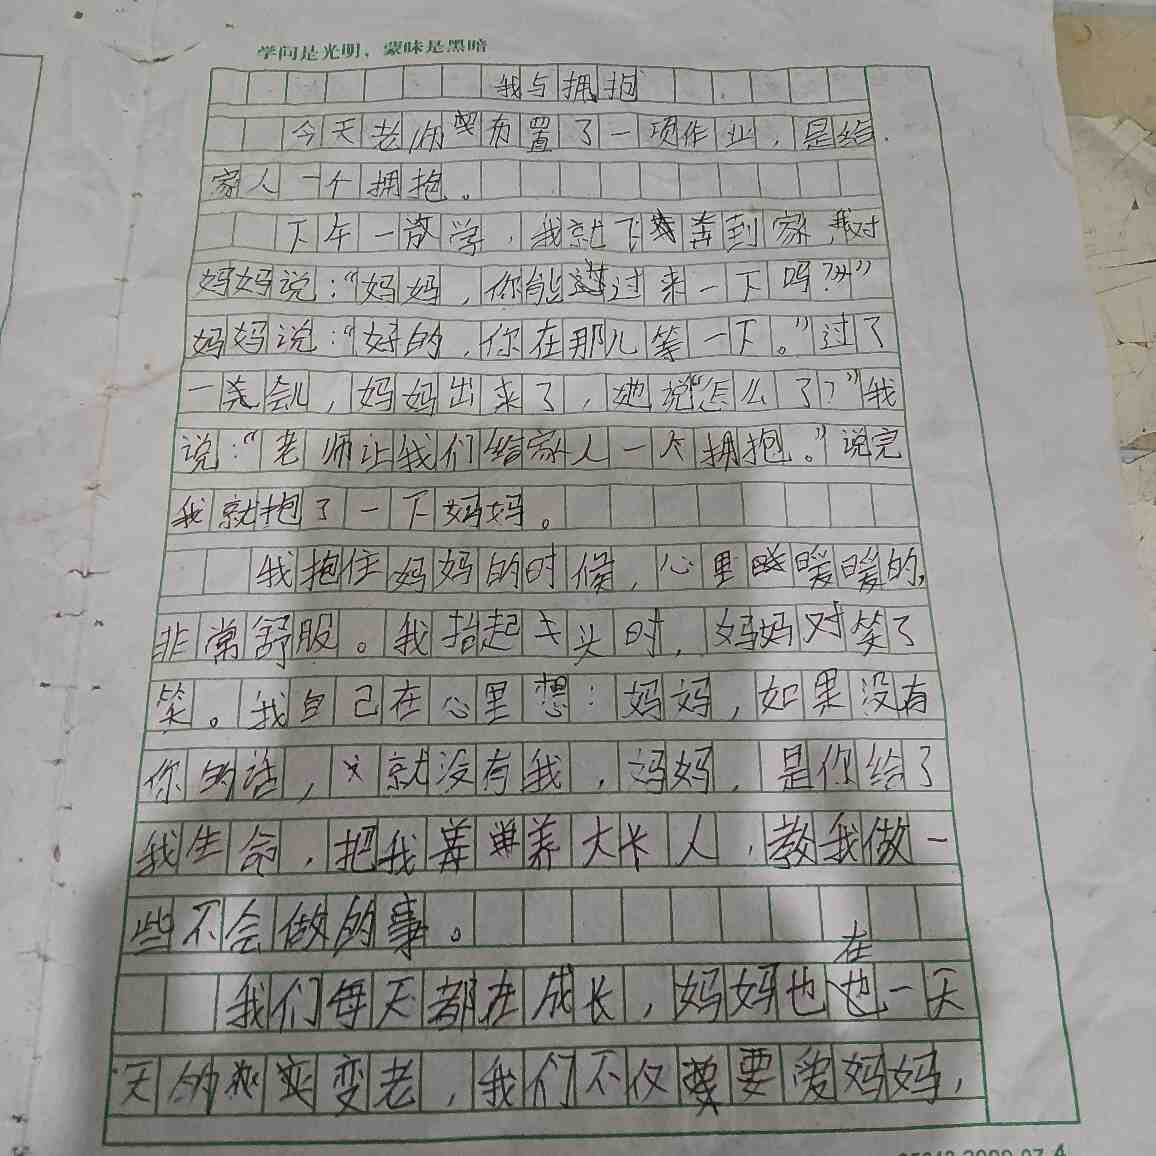 学问是光明，蒙昧是黑暗
我与拥抱
今天老师布置了一项作业，是给
家人一个拥抱。
下午一放学，我就飞奔到家，我对
妈妈说：“妈妈，你能过来一下吗？”
妈妈说：“好的，你在那儿等一下。”过了
一会儿，妈妈出来了，她说“怎么了？”我
说：“老师让我们给家人一个拥抱。”说完
我就抱了一下妈妈。
我抱住妈妈的时候，心里暖暖的，
非常舒服。我抬起头时，妈妈对笑了
笑。我自己在心里想：妈妈，如果没有
你的话，就没有我，妈妈，是你给了
我生命，把我养大长人，教我做一
些不会做的事。
我们每天都在成长，妈妈也在一天
天的变老，我们不仅要爱妈妈，